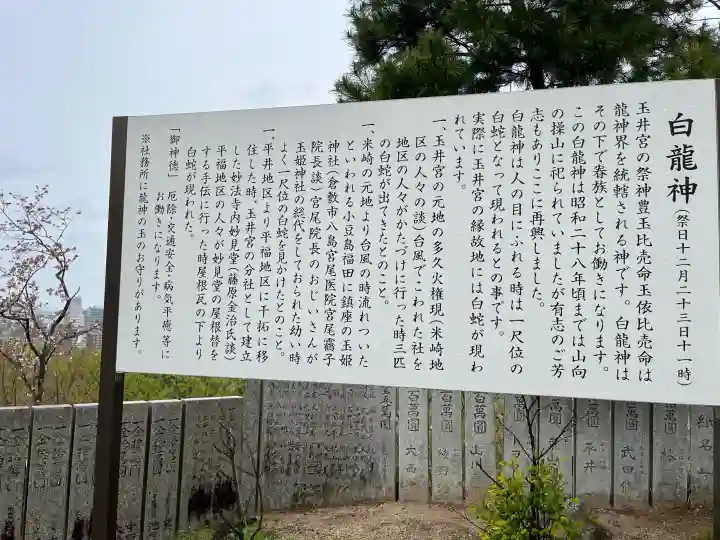 白龍神(祭日十二月二十三日十一時)
玉井宮の祭神豊玉比売命玉依比売命は
龍神界を統轄される神です。白龍神は
その下で眷族としてお働きになります。
この白龍神は昭和二十八年頃までは山向
の操山に祀られていましたが有志のご芳
志もありここに再興しました。
白龍神は人の目にふれる時は一尺位の
白蛇となって現われるとの事です。
実際に玉井宮の縁故地には白蛇が現わ
れています。
一、玉井宮の元地の多久火権現(米崎地
区の人々の談)台風でこわれた社を
地区の人々がかたづけに行った時三匹
の白蛇が出てきたとのこと。
一、米崎の元地より台風の時流れついた
といわれる小豆島福田に鎮座の玉姫
神社(倉敷市八島宮尾医院宮尾靄子
院長談)宮尾院長のおじいさんが
玉姫神社の総代をしておられた幼い時
よく一尺位の白蛇を見かけたとのこと。
一、平井地区より平福地区に干拓に移
住した時、玉井宮の分社として建立
した妙法寺内妙見堂(藤原金治氏談)
平福地区の人々が妙見堂の屋根替を
する手伝に行った時屋根瓦の下より
白蛇が現われた。
「御神徳」厄除・交通安全・病気平癒等に
お働きになります。
※社務所に龍神の玉のお守りがあります。
武田
平井
山
百萬圓
百萬圓
大西
百萬圓
五萬圓